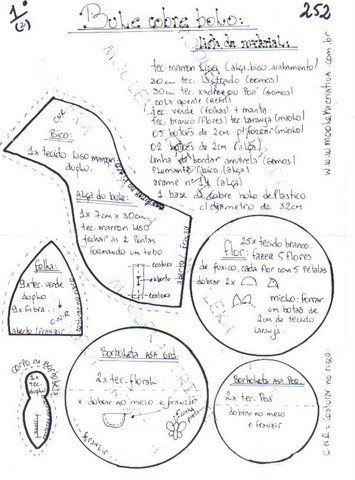 1º
(2)
Bule cobre bolo:
252
lista de material:
tec. marrom liso (alça, bico, tratamento)
30cm tec. listrado (gomos)
30cm tec. xadrez ou Poá (gomos)
cola quente (refil)
tec. verde (folhas) + manta
tec. branco (flores) tec. laranja (miolo)
05 botões de 2cm p/ forrar (miolo)
02 botões de 2cm (alça)
linha p/ bordar amarela (gomos)
Plumante (bico) (alça)
arame nº 14 (alça)
1 base de cobre bolo de Plastico
c/ diametro de 32cm
www.moldschacriativa.com.br
Bico:
1x tecido liso marrom
duplo.
Alça do bole:
1x 7cm x 30cm
tec. marrom liso
fechar as 2 Pontas
formando um tubo
costura
aberto
costura
aberto franzir
folha:
9x tec. verde
duplo
9x fibra.
aberto franzir
C.N.R
flor:
25x tecido branco
fazer 5 flores
de fuxico, cada flor com 5 petalas
dobrar 2x
miolo: forrar
um botão de
2cm de tecido
laranja
corpo da borboleta
2x
tec.
duplo
Borboleta ASA Grd.
2x tec. floral
dobrar no meio e franzir
franzir
Borboleta ASA Peq.
2x tec. Poá
dobrar no meio
e franzir
C.N.R = costurar no risco.